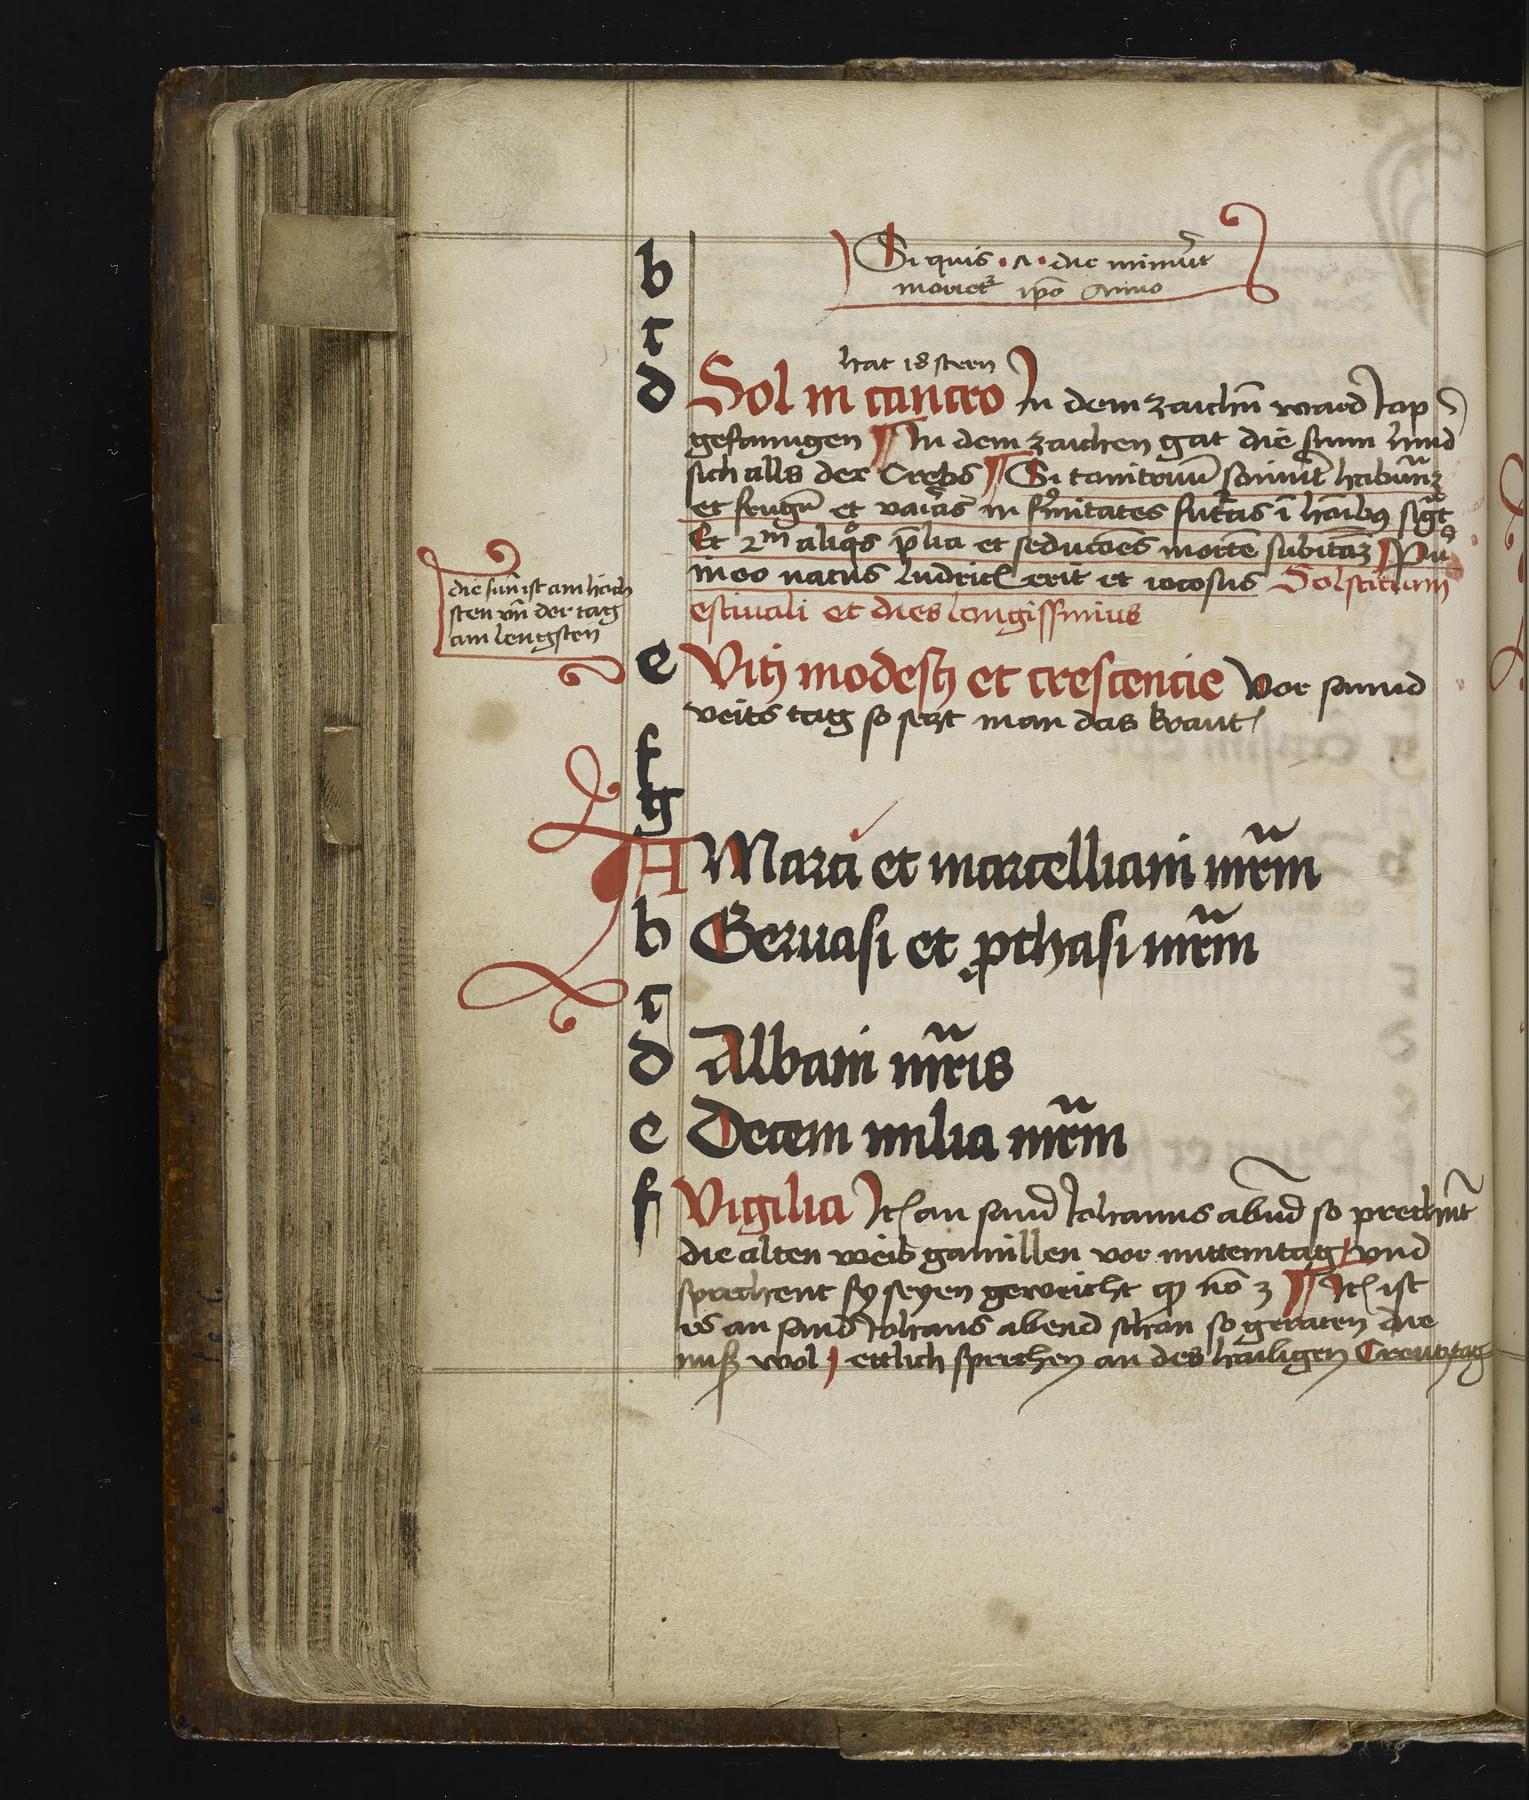 b
Si quis · a · die minuit
moriet ipo Anno
c
hat 18 stern
d Sol in cancro In dem zaichn̄ ward Jop
gefanngen ¶ In dem zaichen gat die sunn hind
sich alls der Crebs ¶ Si tonitruū sonuit habunꝫ
et frugū et varias infirmitates futras ī hōibꝫ sigt
Et 2m aliqos p̄lia et seductōes mortē subitaꝫ ¶ Pu
in oo natus erit et iocosus Solsticium
estiuali et dies longissimus
die sun̄ ist am höch
sten vn̄ der tag
am lengsten
e Viti modesti et crescencie Vor sannd
veits tag so sezt man das kraut
f
g
A Marci et marcelliani mr̄m
b Geruasi et ꝓthasi mr̄m
c
d Albani mr̄is
e Decem milia mr̄m
f Vigilia It an sand Johanns abn̄d so prechnt
die alten weib gamillen vor mittemtag vnd
sprechent sy seyen geweicht qd nō ꝫ ¶ It ist
es an sand Johans abend schön so geraten die
nuß wol ettlich sprechen an des hailigen Creutztag